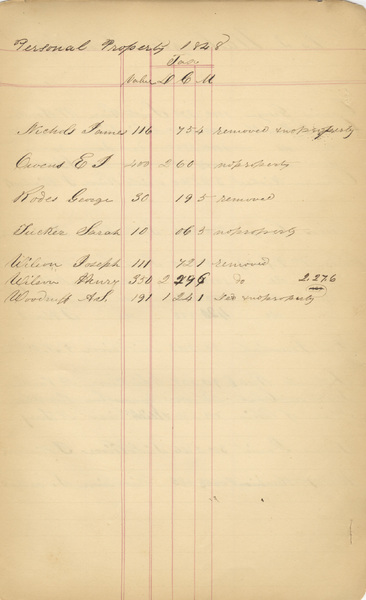 Personal Property 1848
Tax
Value D C M
Nichols James 116 75 4 removed & no property
Owens E J 400 2 60 no property
Rodes George 30 19 5 removed
Tucker Sarah 10 06 5 no property
Wilson Joseph 111 72 1 removed
Wilson Henry 350 2 27 6 do 2.27.6
Woodruff A S. 191 1 24 1 no property